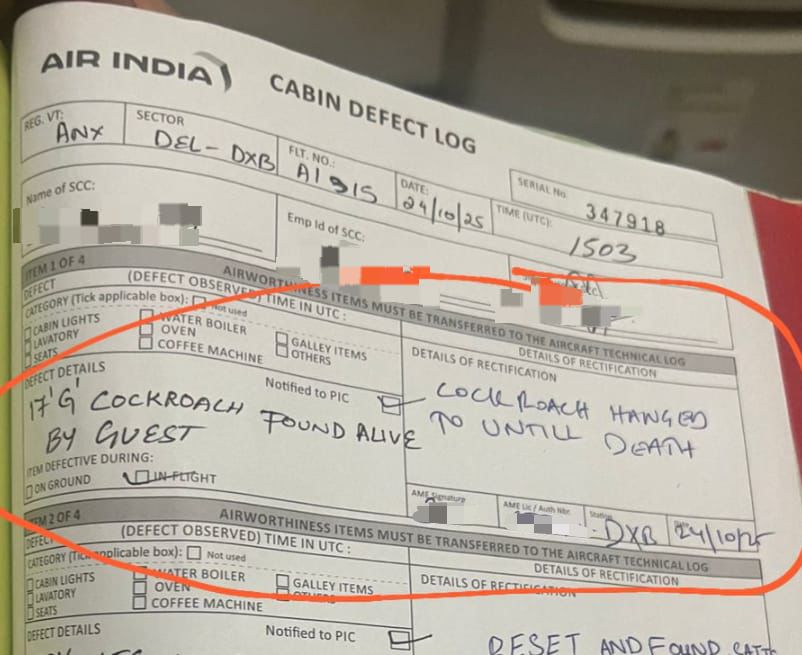 AIR INDIA
CABIN DEFECT LOG
REG. VT:
ANX
SECTOR
DEL - DXB
FLT. NO.:
AI 915
DATE:
24/10/25
SERIAL No.
347918
TIME (UTC):
1503
Name of SCC:
Emp Id of SCC:
ITEM 1 OF 4
AIRWORTHINESS ITEMS MUST BE TRANSFERRED TO THE AIRCRAFT TECHNICAL LOG
DEFECT
(DEFECT OBSERVED) TIME IN UTC :
DETAILS OF RECTIFICATION
CATEGORY (Tick applicable box):
Not used
CABIN LIGHTS
LAVATORY
SEATS
WATER BOILER
OVEN
COFFEE MACHINE
GALLEY ITEMS
OTHERS
DETAILS OF RECTIFICATION
DEFECT DETAILS
Notified to PIC
17'G' COCKROACH FOUND ALIVE
BY GUEST
COCKROACH HANGED
TO UNTILL DEATH
ITEM DEFECTIVE DURING:
ON GROUND
IN-FLIGHT
AME Signature
AME Lic / Auth Nbr.
Station
DXB
Date
24/10/25
ITEM 2 OF 4
AIRWORTHINESS ITEMS MUST BE TRANSFERRED TO THE AIRCRAFT TECHNICAL LOG
DEFECT
(DEFECT OBSERVED) TIME IN UTC :
DETAILS OF RECTIFICATION
CATEGORY (Tick applicable box):
Not used
CABIN LIGHTS
LAVATORY
SEATS
WATER BOILER
OVEN
COFFEE MACHINE
GALLEY ITEMS
OTHERS
DETAILS OF RECTIFICATION
DEFECT DETAILS
Notified to PIC
RESET AND FOUND